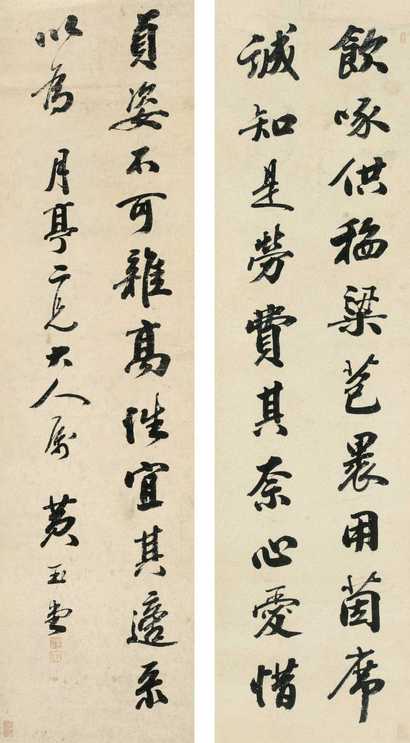 飲啄供稻梁苞裹用茵席
誠知是勞費其奈心愛惜
貞姿不可雜高性宜其適
以為 月亭二兄大人屬 黃玉堂